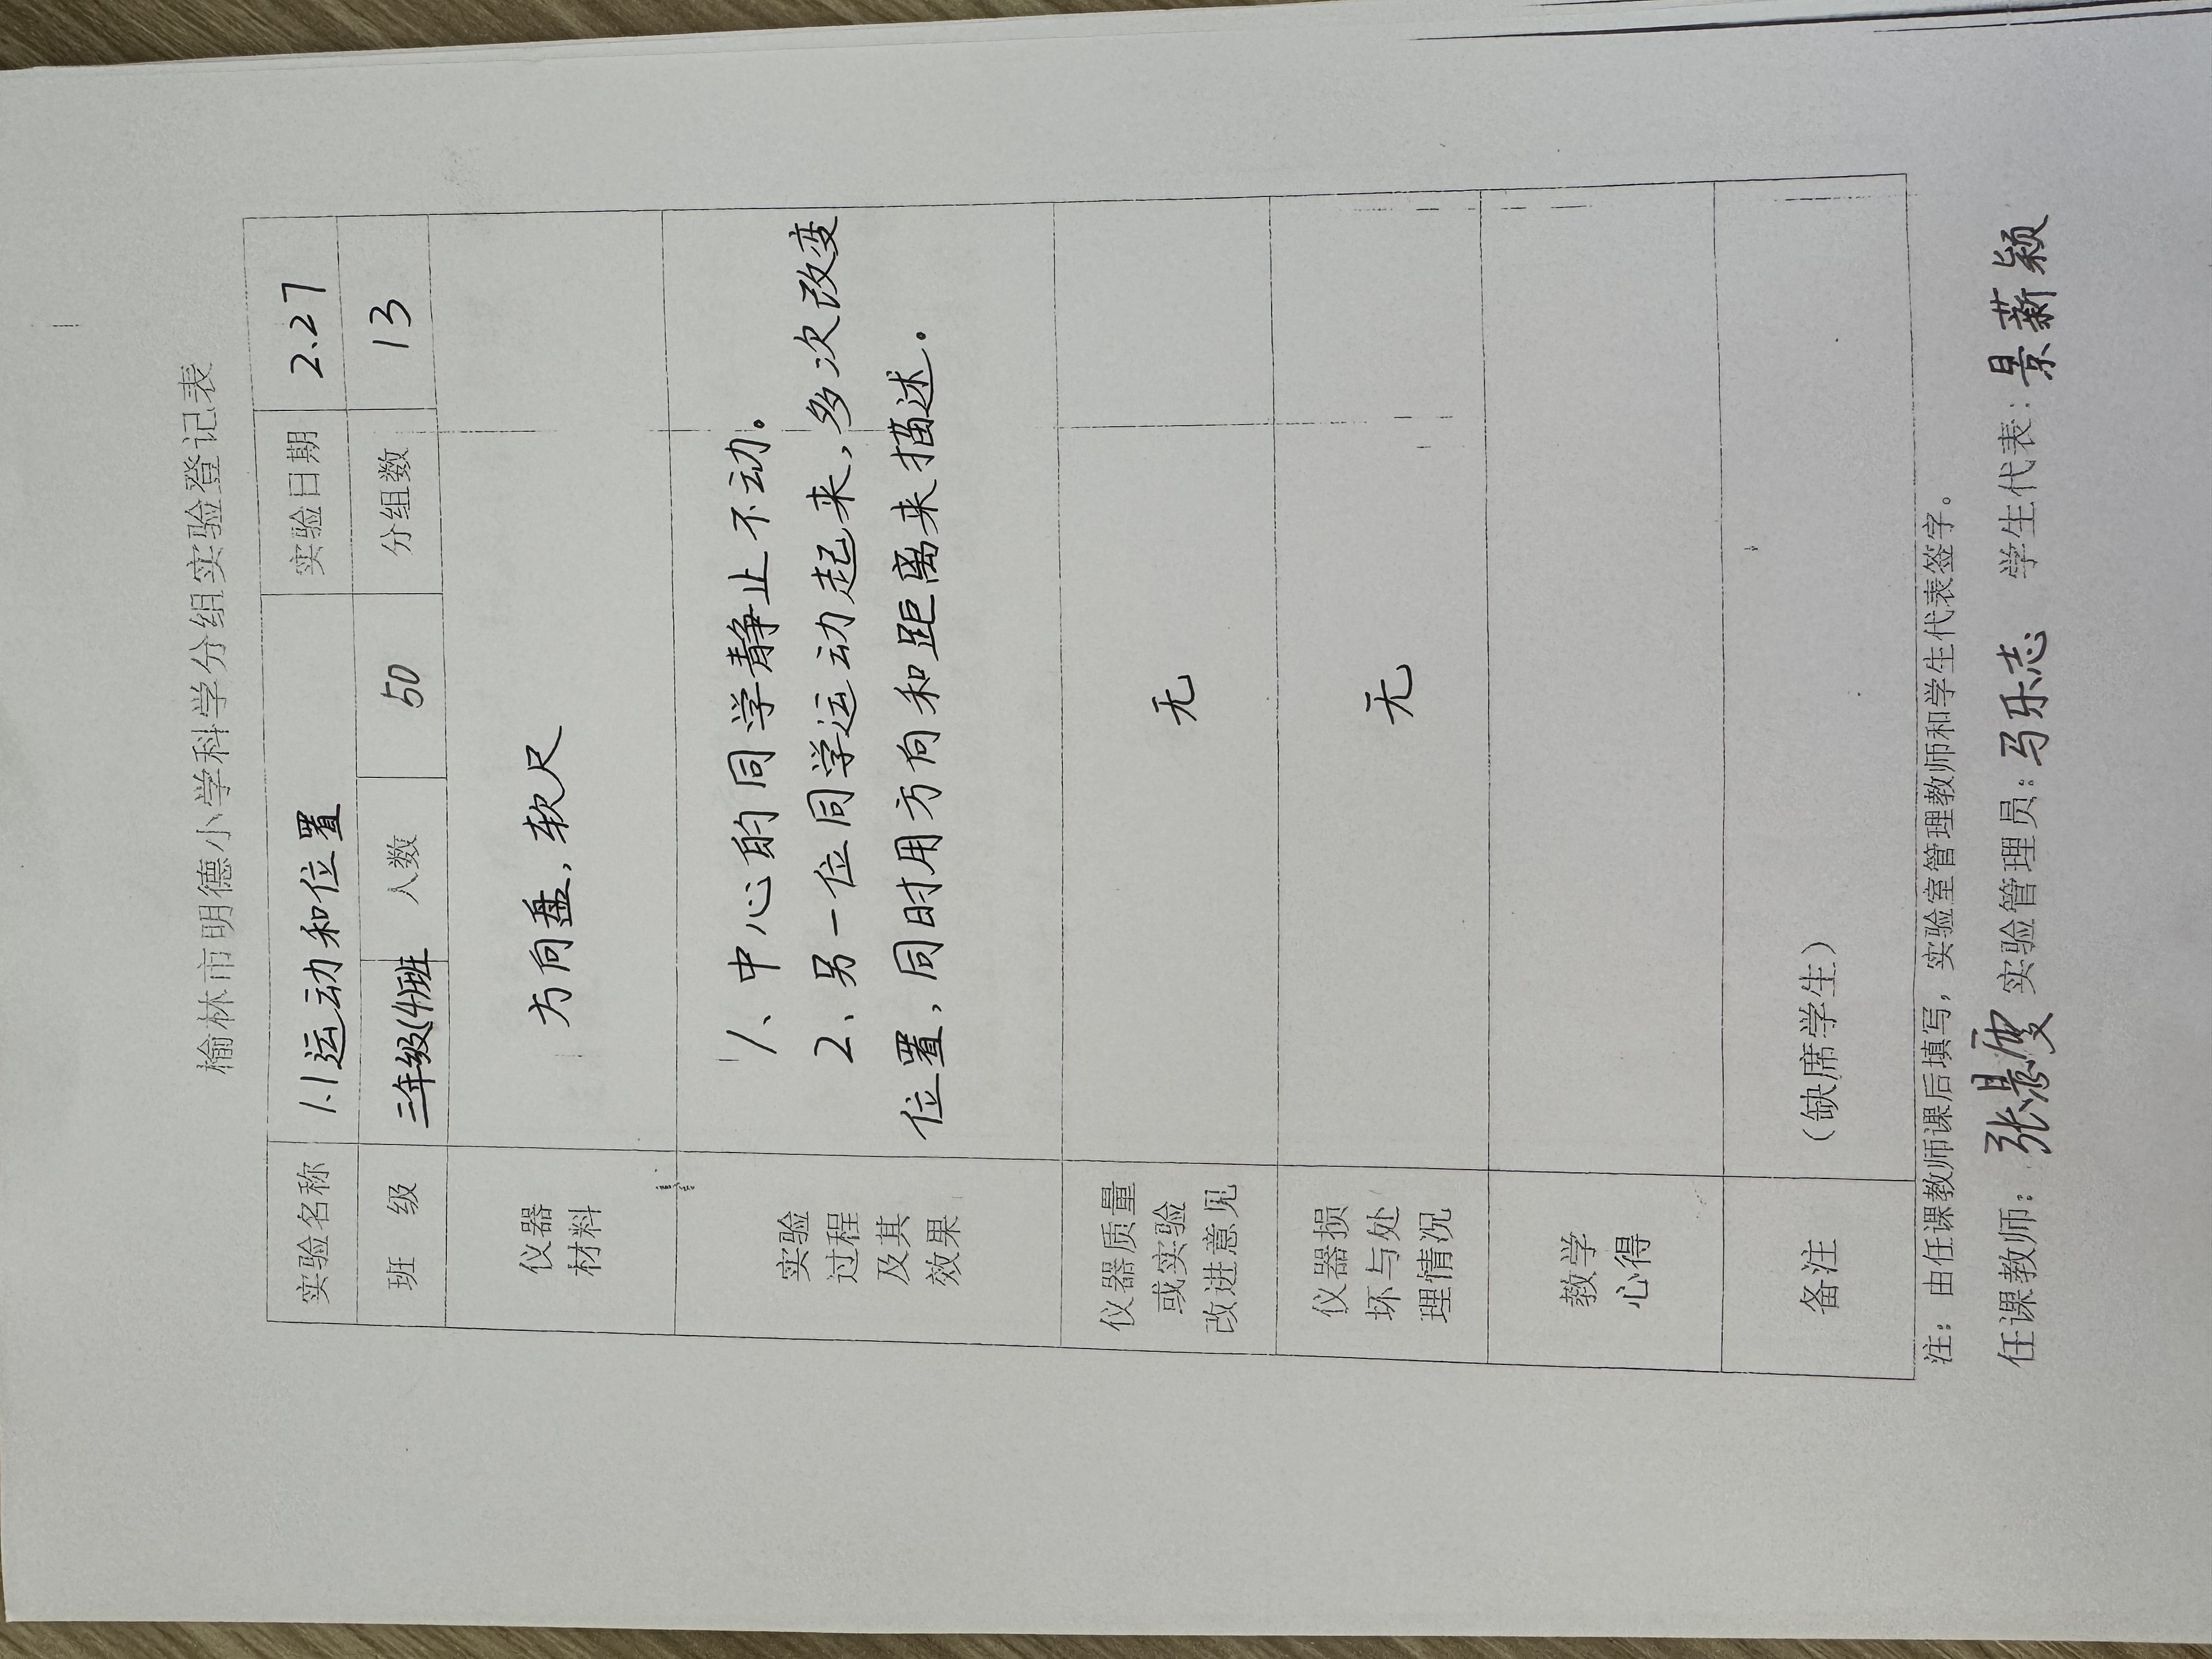 榆林市明德小学科学分组实验登记表
实验名称 1.1运动和位置 实验日期 2.27
班 级 三年级(4)班 人数 50 分组数 13
仪器
材料
方向盘,软尺
实验
过程
及其
效果
1、中心的同学静止不动。
2、另一位同学运动起来,多次改变
位置,同时用方向和距离来描述.
仪器质量
或实验
改进意见
无
仪器损
坏与处
理情况
无
教学
心得
备注
(缺席学生)
注:由任课教师课后填写,实验室管理教师和学生代表签字。
任课教师: 张 实验管理员:马乐志 学生代表:景薪颖